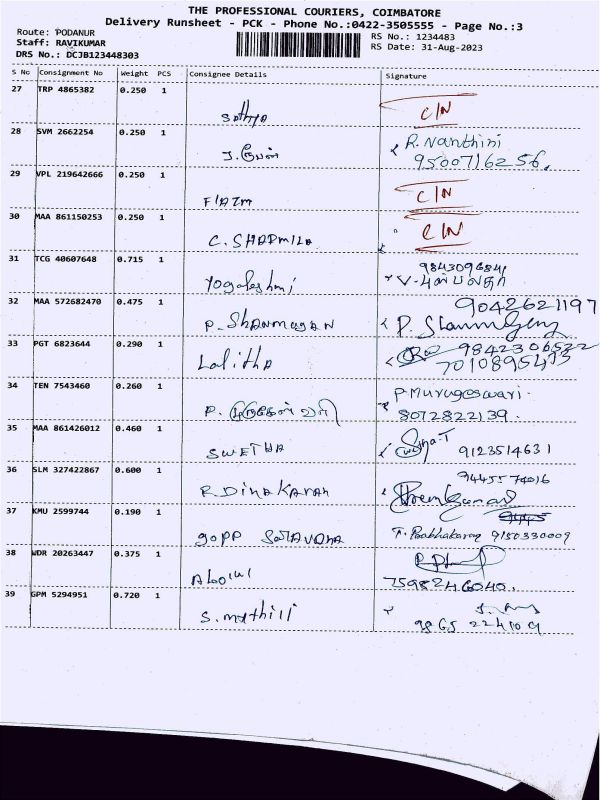 THE PROFESSIONAL COURIERS, COIMBATORE
Delivery Runsheet - PCK - Phone No.:0422-3505555 - Page No.:3
Route: PODANUR
Staff: RAVIKUMAR
DRS No.: DCJB123448303
RS No.: 1234483
RS Date: 31-Aug-2023
S No Consignment No Weight PCS Consignee Details Signature
27 TRP 4865382 0.250 1 Sathya C/N
28 SVM 2662254 0.250 1 R. Nanthini
9500716256.
29 VPL 219642666 0.250 1 C/N
30 MAA 861150253 0.250 1 C. SHARMILA C/N
31 TCG 40607648 0.715 1 Yogalashmi
32 MAA 572682470 0.475 1 P. Shanmugan 9042621197
33 PGT 6823644 0.290 1 Lalitha 9842306522
7010895413
34 TEN 7543460 0.260 1 P. P Murugeswari.
8072822139.
35 MAA 861426012 0.460 1 SWETHA 9123514631
36 SLM 327422867 0.600 1 R. DINAKARAN 9445574016
37 KMU 2599744 0.190 1 T. Prabhakaran 9150330009
38 WDR 20263447 0.375 1
7598246040.
39 GPM 5294951 0.720 1 S. mythili
9865 224109